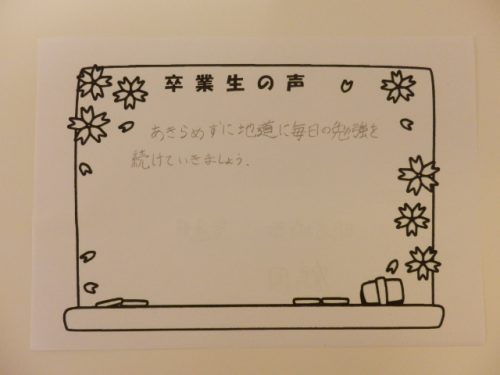 卒業生の声
あきらめずに地道に毎日の勉強を
続けていきましょう.